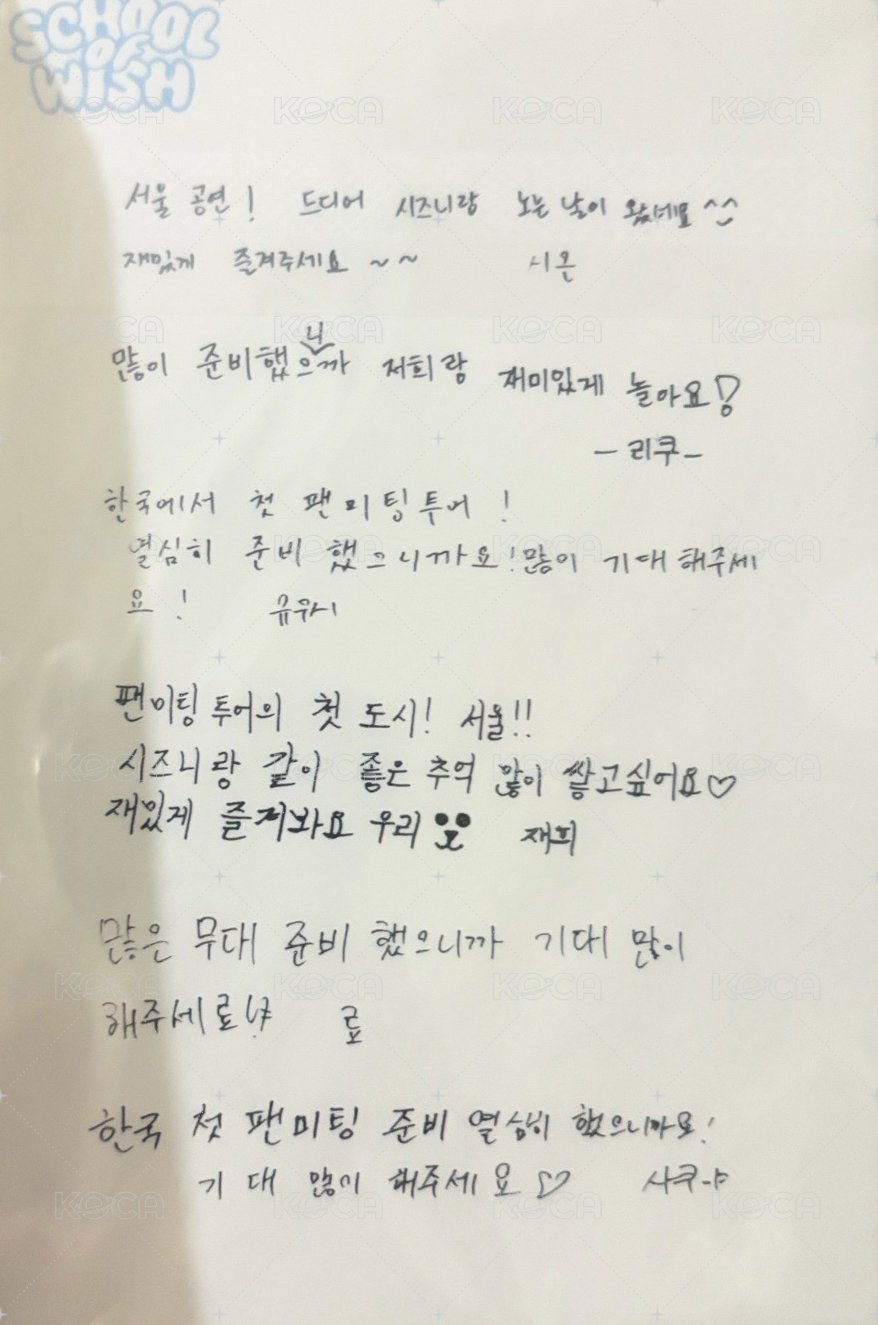 SCHOOL
OF
WISH
서울 공연! 드디어 시즈니랑 노는 날이 왔네요 ^^
재밌게 즐겨주세요 ~~ 시온
많이 준비했으니까 저희랑 재미있게 놀아요!
- 리쿠 -
한국에서 첫 팬미팅투어!
열심히 준비 했으니까요! 많이 기대해주세
요! 유우시
팬미팅 투어의 첫 도시! 서울!!
시즈니랑 같이 좋은 추억 많이 쌓고싶어요♡
재밌게 즐겨봐요 우리 재희
많은 무대 준비 했으니까 기대 많이
해주세료 료
한국 첫 팬미팅 준비 열심히 했으니까요!
기대 많이 해주세요♡ 사쿠야
KOCA